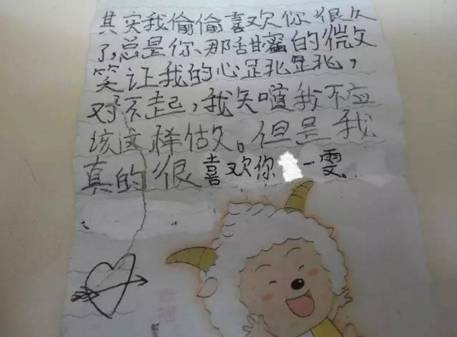 其实我偷偷喜欢你很久
了,总是你那甜蜜的微文
笑让我的心乱乱,
对不起,我知道我不应
该这样做。但是我
真的很喜欢你 一雯